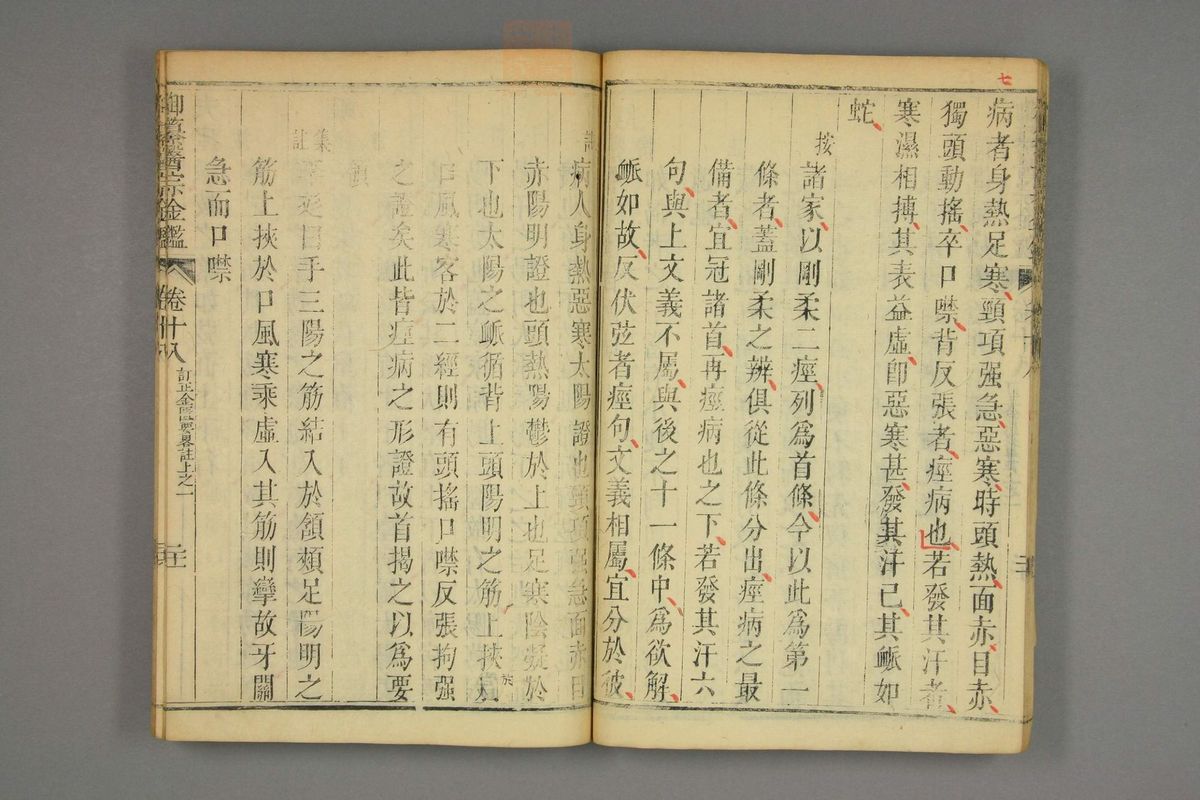 七
病者身熱足寒頸項强急惡寒時頭熱面赤目赤
獨頭動搖卒口噤背反張者痙病也若發其汗者
寒濕相摶其表益虛卽惡寒甚發其汗已其脈如
蛇
按諸家以剛柔二痙列爲首條今以此爲第一
條者蓋剛柔之辨俱從此條分出痙病之最
備者宜冠諸首再痙病也之下若發其汗六
句與上文義不屬與後之十一條中爲欲解
脈如故反伏弦者痙句文義相屬宜分於彼
註病人身熱惡寒太陽證也頸項强急面赤目
赤陽明證也頭熱陽鬱於上也足寒陰凝於
下也太陽之脈循背上頭陽明之筋上挾
於
口風寒客於二經則有頭搖口噤反張拘强
之證矣此皆痙病之形證故首揭之以爲要
領
集註曰手三陽之筋結入於頷頰足陽明之
筋上挾於口風寒乘虛入其筋則攣故牙關
急而口噤
御纂醫宗金鑑 卷十八 訂正金匱要畧註上之一